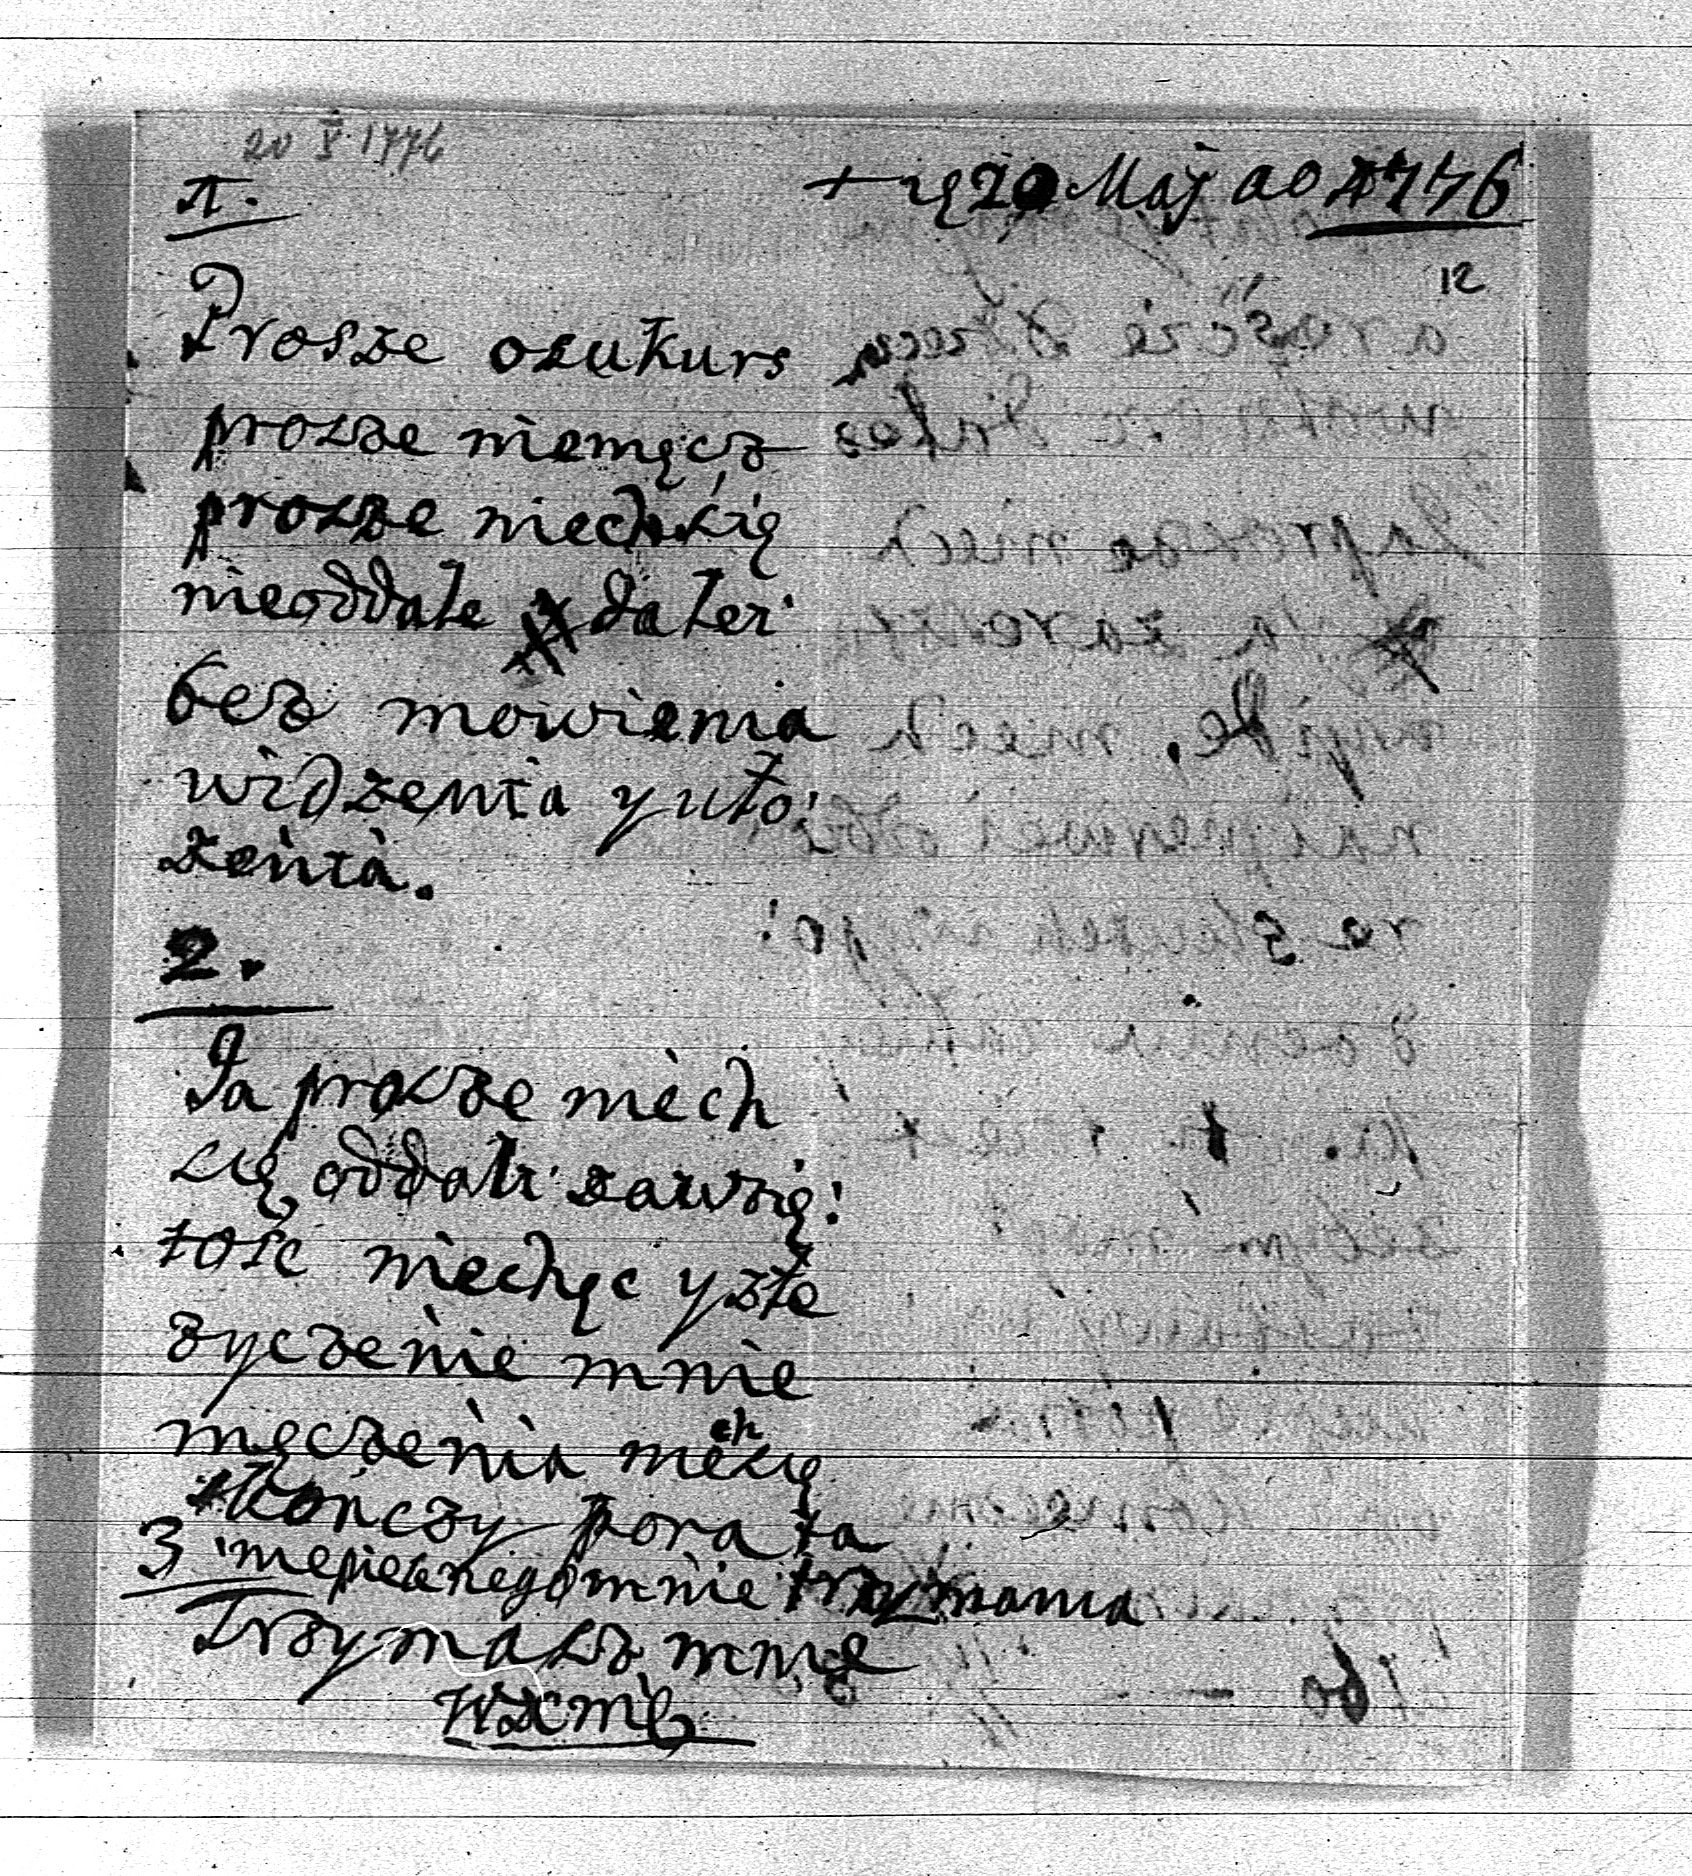 20 X 1776
1.
20 Maj ao 1776
12
Prosze osukurs
prosze niemęcz
prosze niech się
nieoddale dalei
bez mowienia
widzenia y uło:
żenia.
2.
Ja prosze niech
się oddali zawzię:
tość niechęc y złe
zyczenie mnie
męczenia niech się
skończy pora ta
3 niepewnego mnie trzymania
trzymasz mnie